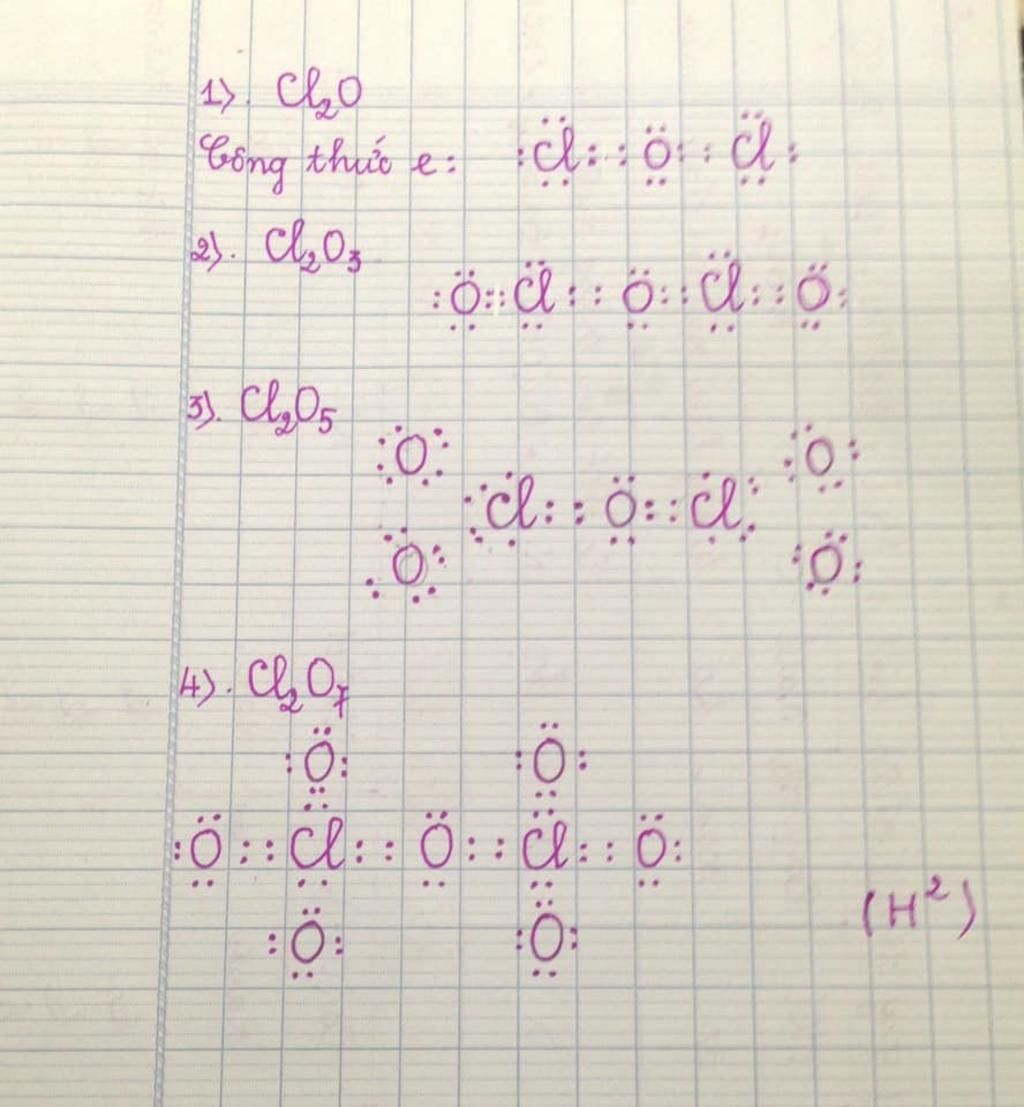 1). Cl₂O
Công thức e: :Cl: :O: :Cl:
2). Cl₂O₃
:O::Cl: :O: :Cl: :O:
3). Cl₂O₅
:O: :O:
:Cl: :O: :Cl:
:O: :O:
4). Cl₂O₇
:O: :O:
:O: :Cl: :O: :Cl: :O:
:O: :O:
(H²)